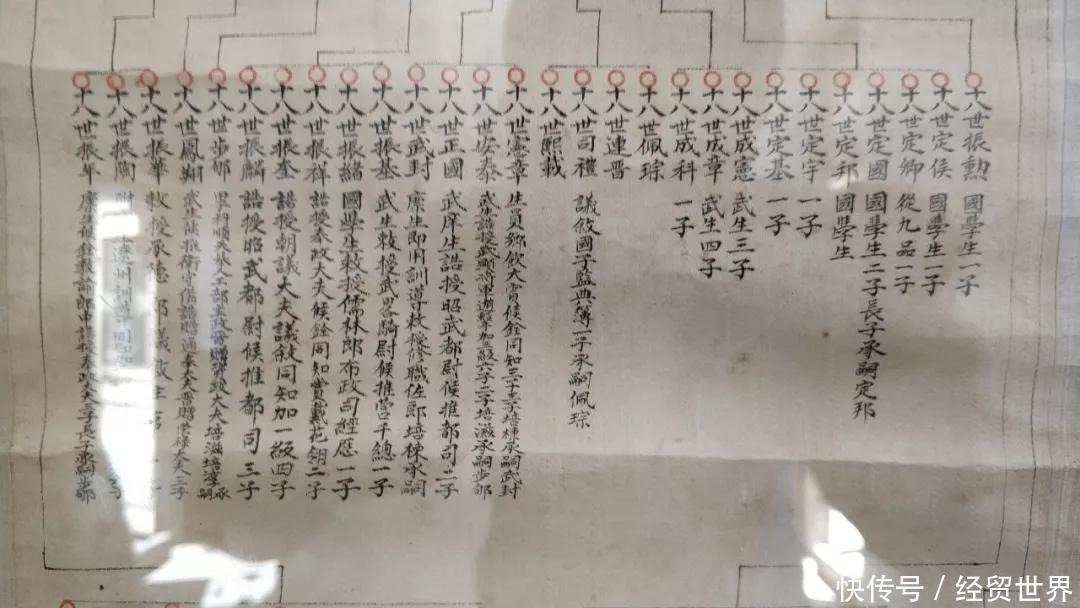 十八世振勳 國學生一子
十八世定侯 國學生一子
十八世定卿 從九品一子
十八世定國 國學生二子長子承嗣定邦
十八世定邦 國學生
十八世定宇 一子
十八世定基 一子
十八世成憲 武生三子
十八世成章 武生四子
十八世成科 一子
十八世佩琮
十八世連晋
十八世司禮 議敘國子監典簿一子承嗣佩琮
十八世熙載
十八世憲章 生員鄉飲大賓候銓同知三子三子培棟承嗣武封
十八世安泰 武生誥授武翼將軍遊擊加三級六子二子培滋承嗣步郇
十八世正國 武庠生誥授昭武都尉候推都司二子
十八世武封 廩生即用訓導敕授修職佐郎培棟承嗣
十八世振基 武生敕授武畧騎尉候推營千總一子
十八世振緒 國學生敕授儒林郎布政司經歷一子
十八世振祥 誥授奉政大夫候銓同知賞戴花翎二子
十八世振奎 誥授朝議大夫議敘同知加一級四子
十八世振麟 誥授昭武都尉候推都司三子
十八世步郇 科順天舉人工部主政晋贈奉政大夫培滋培 承嗣
十八世鳳翔 武生候推衛守備誥贈通奉大夫晋贈榮祿大夫三子
十八世振華 敕授承德郎議敘
十八世振關 附 遼州訓導同知加 子
十八世振年 廩生候銓教諭 大夫三子長子承嗣步郇
快传号 / 经贸世界